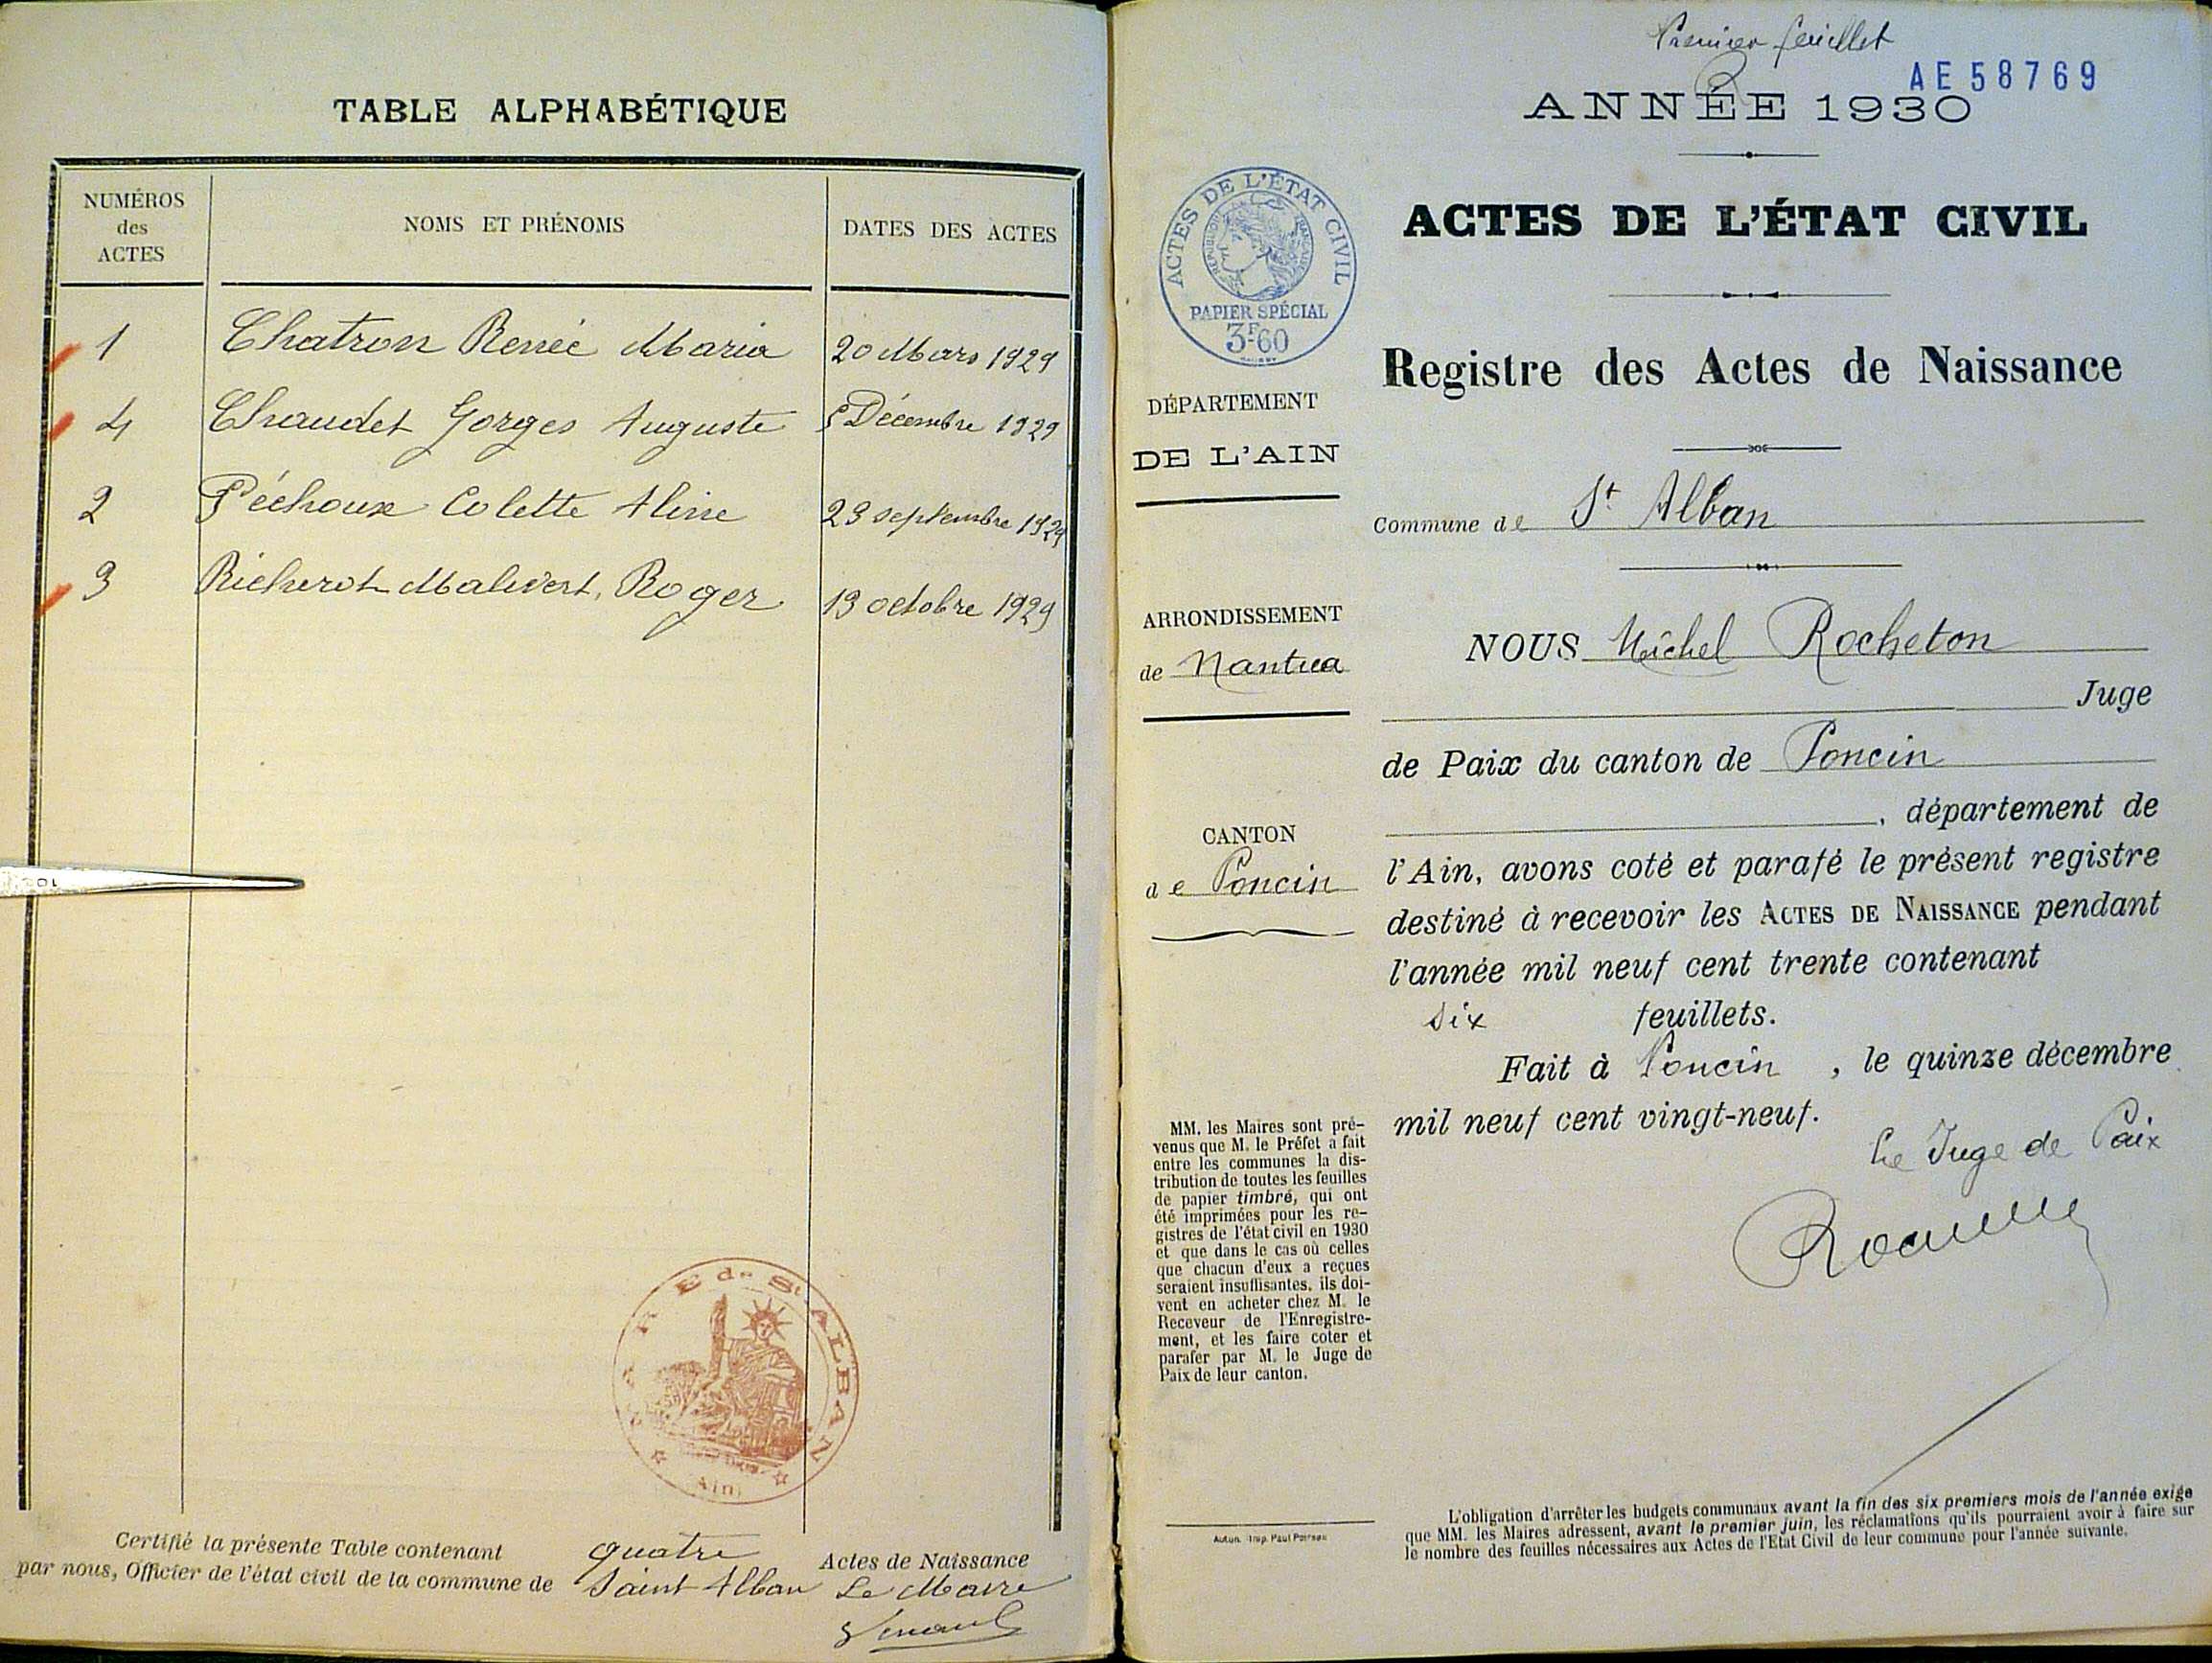 TABLE ALPHABÉTIQUE
NUMÉROS
des
ACTES
NOMS ET PRÉNOMS
DATES DES ACTES
1 Chatron Renée Maria 20 Mars 1929
4 Chaudet Gorges Auguste 5 Décembre 1929
2 Péchoux Colette Aline 23 septembre 1929
3 Richerot Malivert, Roger 13 octobre 1929
E de St ALBAN
Ain
Certifié la présente Table contenant quatre Actes de Naissance
par nous, Officier de l'état civil de la commune de Saint Alban Le Maire
Premier feuillet
AE58769
ANNÉE 1930
ACTES DE L'ÉTAT CIVIL
Registre des Actes de Naissance
Commune de St Alban
NOUS Michel Rocheton
Juge
de Paix du canton de Poncin
, département de
l'Ain, avons coté et parafé le présent registre
destiné à recevoir les ACTES DE NAISSANCE pendant
l'année mil neuf cent trente contenant
six feuillets.
Fait à Poncin, le quinze décembre
mil neuf cent vingt-neuf.
Le Juge de Paix
ACTES DE L'ÉTAT CIVIL
RÉPUBLIQUE FRANÇAISE
PAPIER SPÉCIAL
3F60
DÉPARTEMENT
DE L'AIN
ARRONDISSEMENT
de Nantua
CANTON
de Poncin
MM. les Maires sont pré-
venus que M. le Préfet a fait
entre les communes la dis-
tribution de toutes les feuilles
de papier timbré, qui ont
été imprimées pour les re-
gistres de l'état civil en 1930
et que dans le cas où celles
que chacun d'eux a reçues
seraient insuffisantes, ils doi-
vent en acheter chez M. le
Receveur de l'Enregistre-
ment, et les faire coter et
parafer par M. le Juge de
Paix de leur canton.
Autun. Imp. Paul
L'obligation d'arrêter les budgets communaux avant la fin des six premiers mois de l'année exige
que MM. les Maires adressent, avant le premier juin, les réclamations qu'ils pourraient avoir à faire sur
le nombre des feuilles nécessaires aux Actes de l'Etat Civil de leur commune pour l'année suivante.